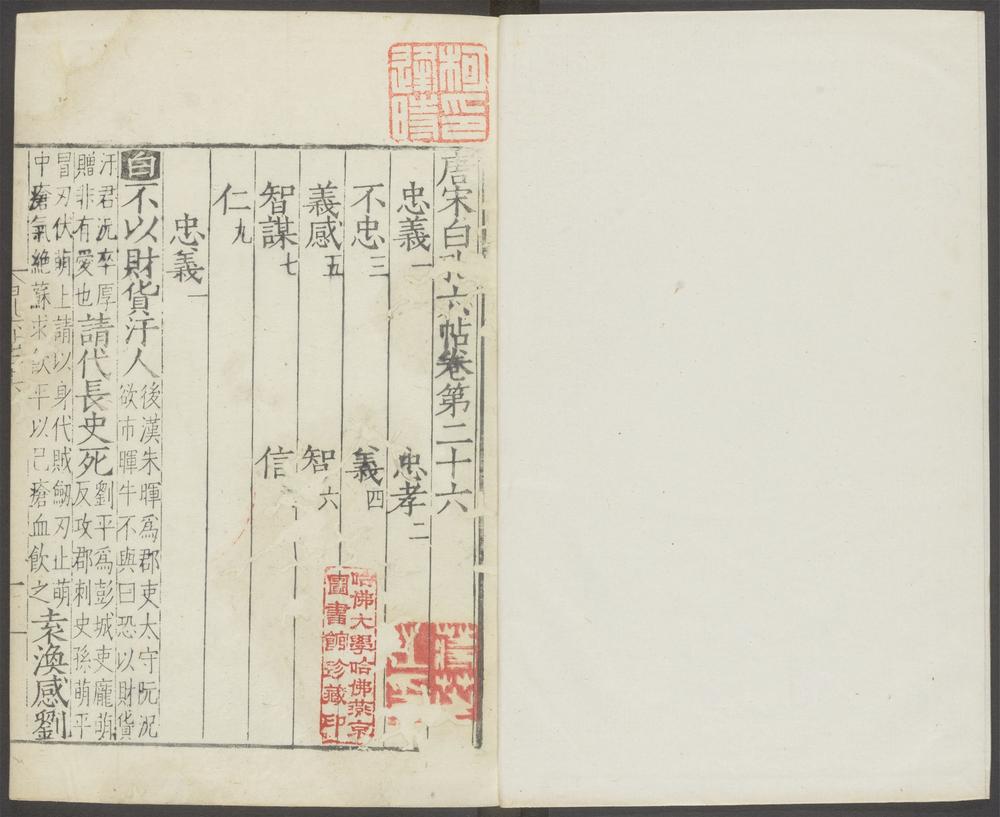 唐宋白孔六帖卷第二十六
忠義一 忠孝二
不忠三 義四
義感五 智六
智謀七 信
仁九
忠義一
白不以財貨汗人後漢朱暉爲郡吏太守阮况
欲市暉牛不與曰恐以財貨
汙君况卒厚
贈非有愛也請代長史死劉平爲彭城吏龐萌
反攻郡刺史孫萌平
冒刃伏萌上請以身代賊劒刃止萌
中瘡氣絶蘇求飲平以己瘡血飲之袁渙感劉
柯印
逢時
哈佛大學哈佛燕京
圖書館珍藏印